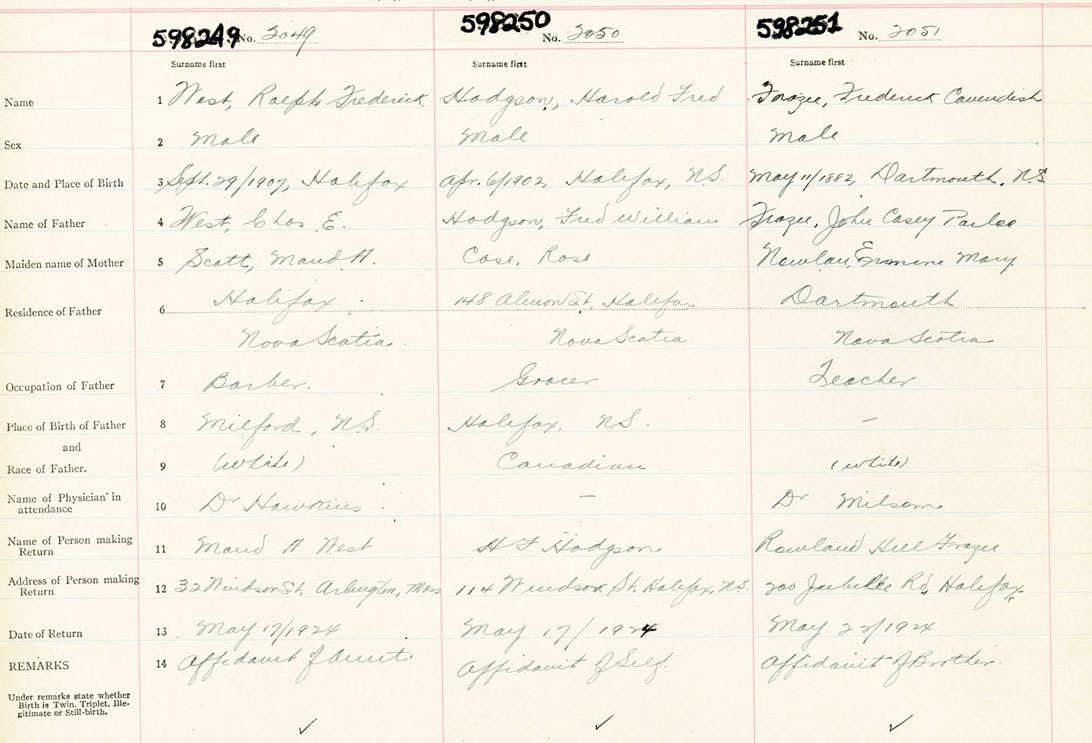 598249 No. 2049 598250 No. 2050 598251 No. 2051
Surname first Surname first Surname first
Name 1 West, Ralph Frederick Hodgson, Harold Fred Frazee, Frederick Cavendish
Sex 2 Male Male Male
Date and Place of Birth 3 Sept. 29/1907, Halifax Apr. 6/1902, Halifax, N.S. May 11/1882, Dartmouth, N.S.
Name of Father 4 West, Chas. E. Hodgson, Fred William Frazee, John Casey
Maiden name of Mother 5 Scott, Maud A. Case, Rose Nowlan, Ermine Mary
Residence of Father 6 Halifax 148 Almon St, Halifax Dartmouth
Nova Scotia. Nova Scotia Nova Scotia
Occupation of Father 7 Barber. Grocer Teacher
Place of Birth of Father 8 Milford, N.S. Halifax, N.S. –
and
Race of Father. 9 (white) Canadian (white)
Name of Physician in attendance 10 Dr Hawkins – Dr Milsom
Name of Person making Return 11 Maud A West H F Hodgson Rowland Hill Frazee
Address of Person making Return 12 32 Windsor St, Arlington, Mass 114 Windsor St. Halifax, N.S. 200 Jubilee Rd, Halifax,
Date of Return 13 May 17/1924 May 17/1924 May 22/1924
REMARKS 14 Affidavit of Aunt. Affidavit of Self. Affidavit of Brother.
Under remarks state whether
Birth is Twin, Triplet, Ille-
gitimate or Still-birth.
✓ ✓ ✓